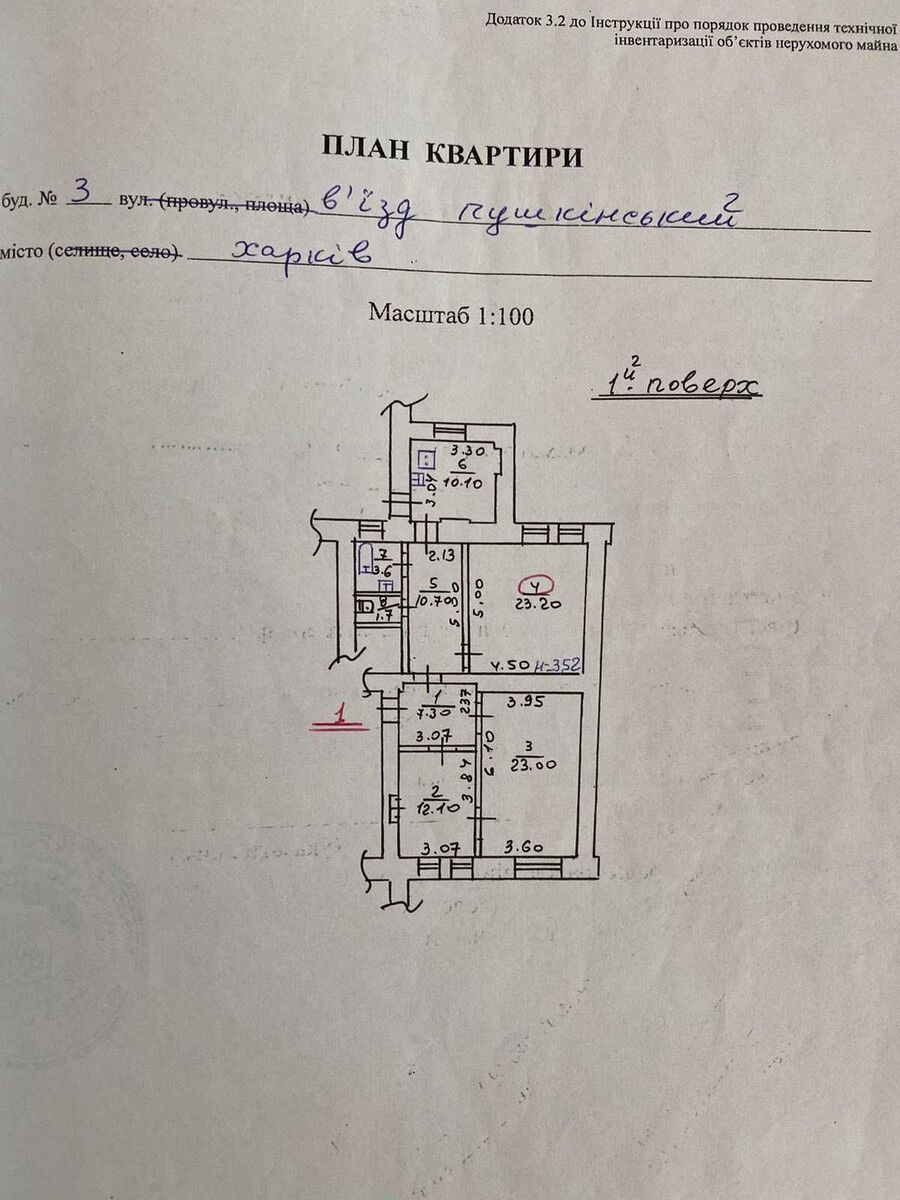 Додаток 3.2 до Інструкції про порядок проведення технічної
інвентаризації об’єктів нерухомого майна
ПЛАН КВАРТИРИ
буд. № 3 вул. (провул., площа) в'їзд пушкінський 2
місто (селище, село) харків
Масштаб 1:100
2
1й поверх
3.30
6
10.10
3.04
7
3.6
2.13
5
10.70
5.00
5.00
4
23.20
8
1.7
4.50 н-352
1
7.30
237
3.07
3.95
1
6.10
3
23.00
2
12.10
3.84
3.07
3.60